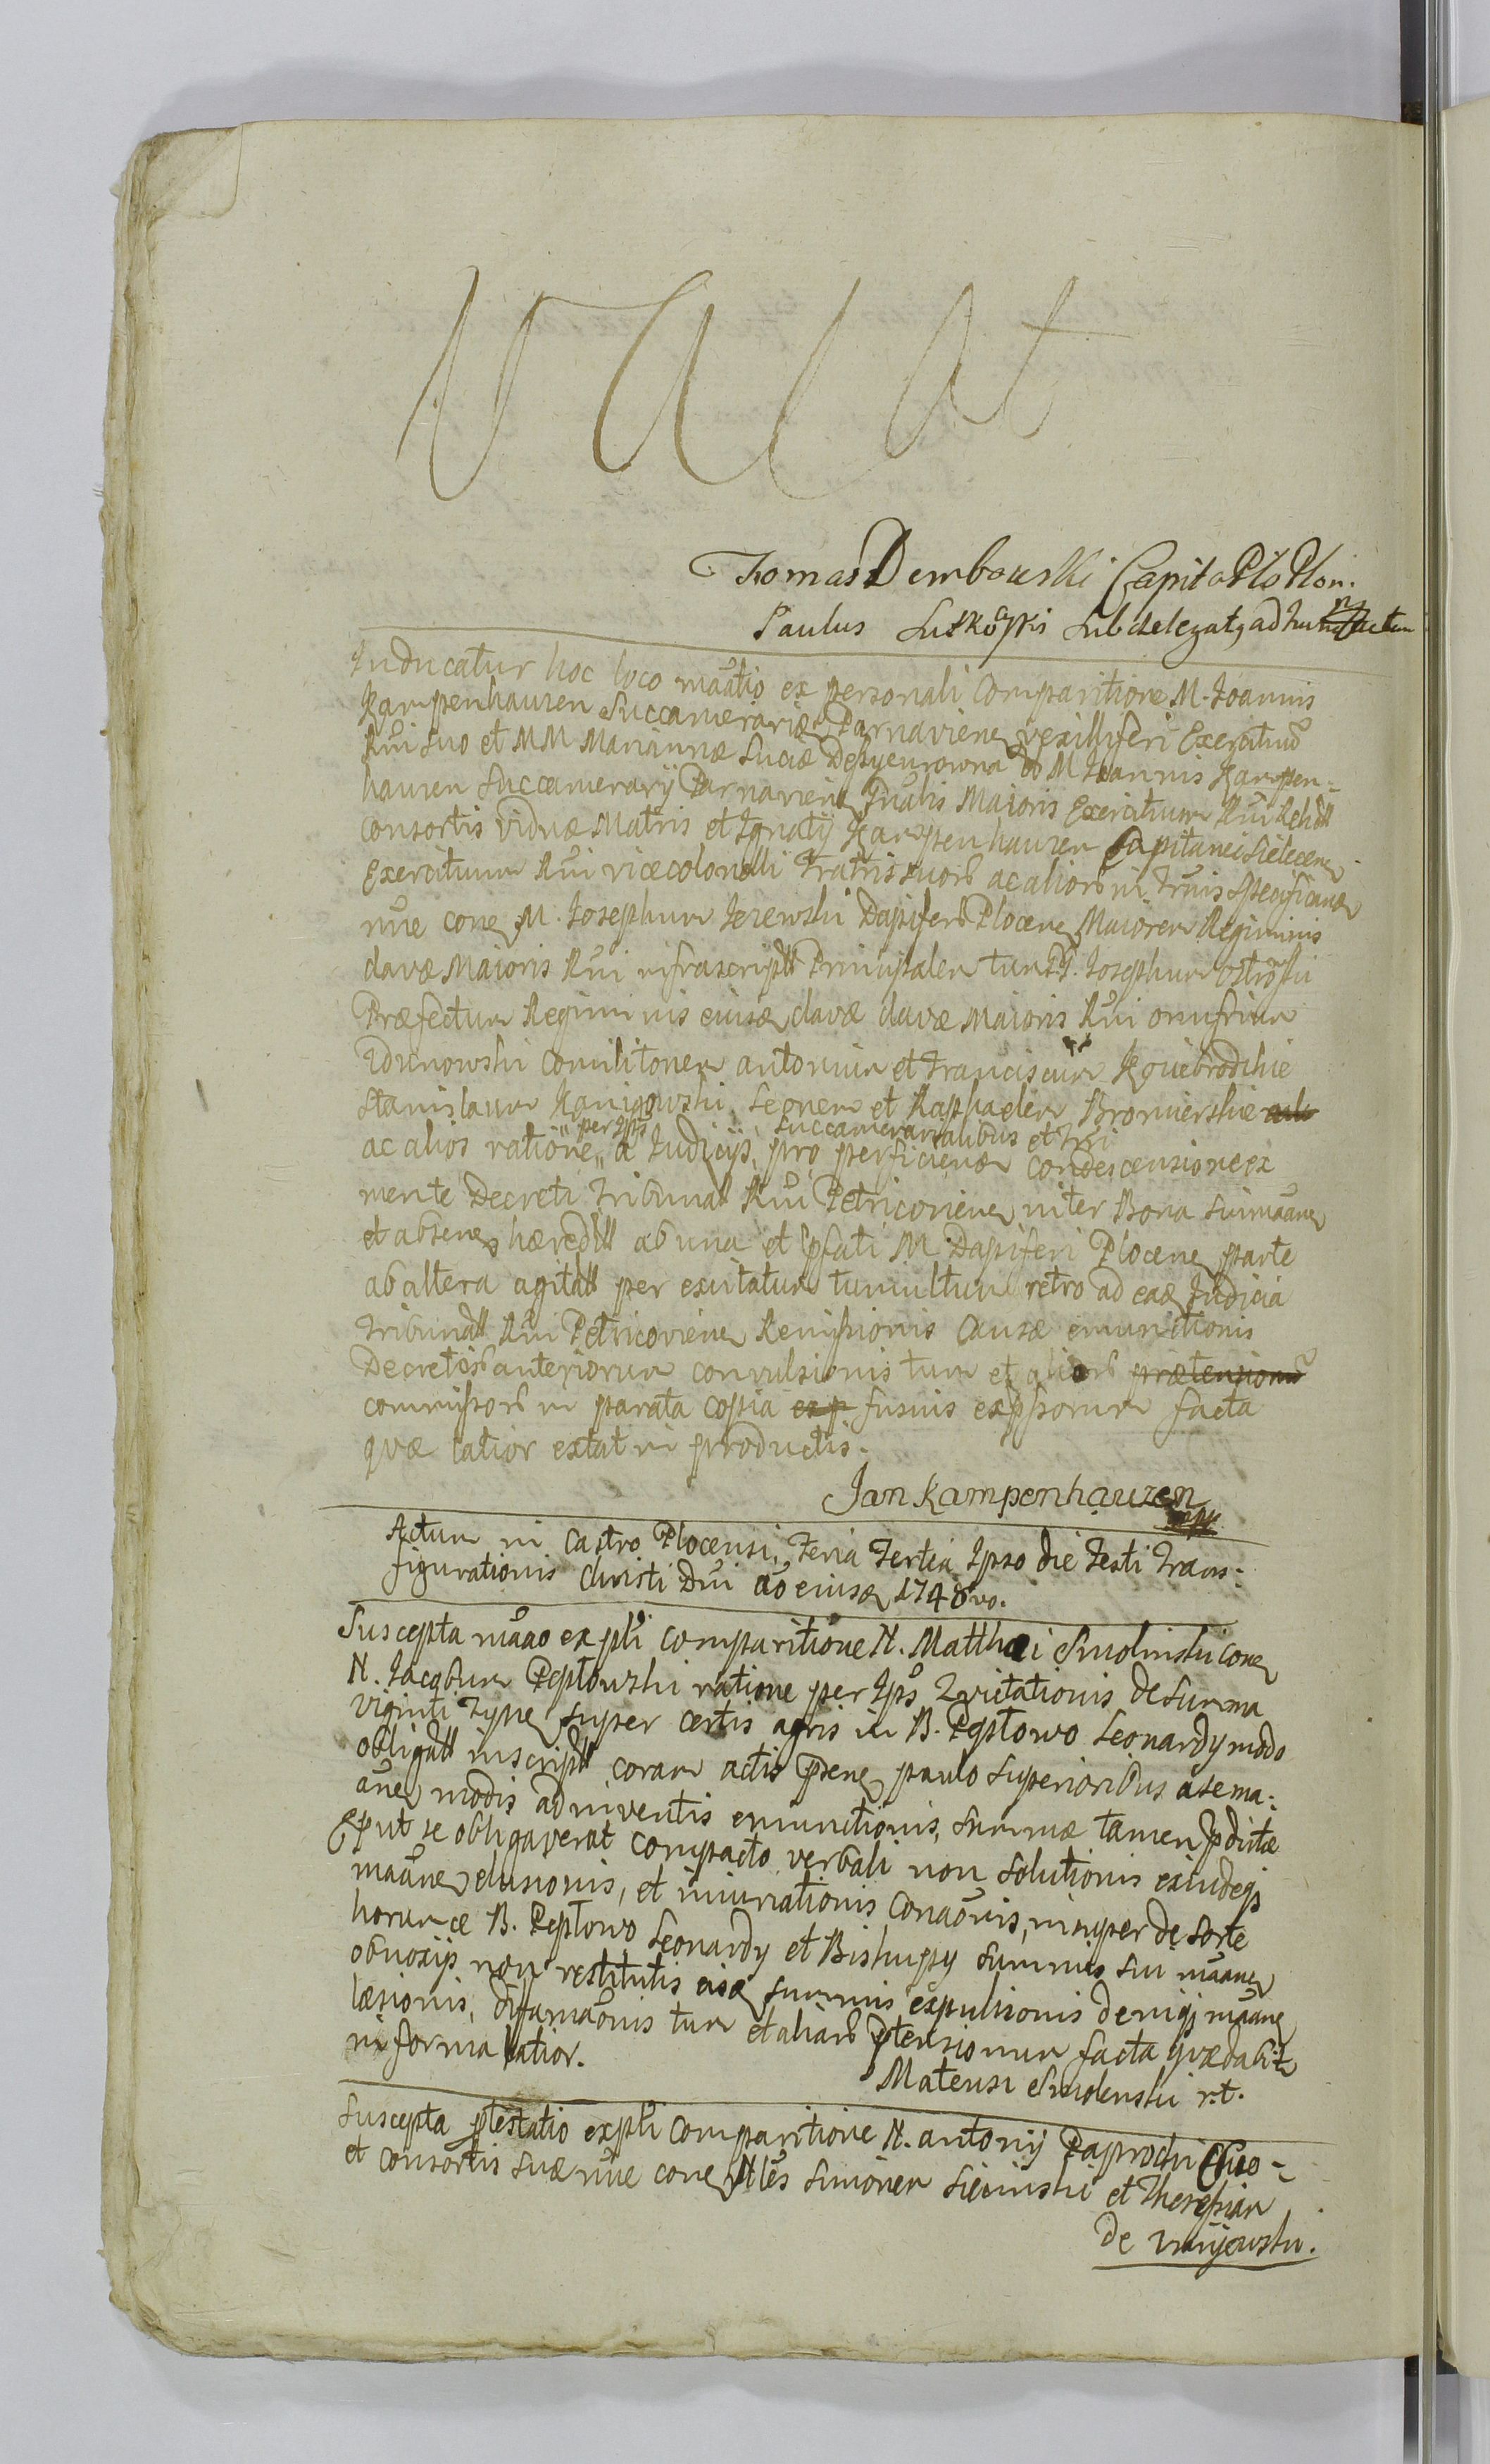 Vacat
Tomas Dembowski Capita Plo Plon.
Paulus Subdelegatq ad hunc actum
Inducatur hoc loco maatio ex personali Comparitione M. Joannis
Kampenhauzen Succamerarii Parnavien vexilliferi Exercituu
Rni suo et MM Mariannæ Luciæ M Joannis Kampen=
hauzen Succamerarÿ Parnavien Gnalis Maioris Exercituum Rni Relict
consortis viduæ Matris et Ignatÿ Kampenhauzen Capitanei
Exercituum Rni vicecolonelli Fratris suor ac alior in Trmis specificand
nne cone M. Josephum Jezewski Dapifer Plocen, Maiorem Regiminis
clavæ Maioris Rni infrascript Principalem tum G. Josephum
Præfectum Regiminis eiusd clavæ clavæ Maioris Rni onufrium
Zdunowski Comilitonem antonium et Franciscum
Stanislaum Kanigowski, Leonem et Raphaelem Bromierskie
ac alios ratione " per Ips " a Judicÿs, Succamerarialibus et Tri pro perficiend condescensione ex
mente Decreti Tribunal Rni Petricovien inter Bona sui maane
et absene hæredit ab una et Ipsati M. Dapiferi Plocen parte
ab altera agitat per excitatum tumultum retro ad ead Judicia
Tribunal Rni Petricovien Remissionis causæ emunctionis
Decretor anteriorum convulsionis tum et alior prætensionu
commissor in parata copia exp fusius expssorum facta
quæ latior extat in productis.
Jan Kampenhauzen
mpp
Actum in Castro Plocensi, Feria Tertia Ipso die Festi Trans=
figurationis Christi Dni ao eiusd 1748vo.
Suscepta maao ex pli comparitione N. Matthæi Smolinski cone
N. Jacobum Peptowski ratione per Ips Quietationis de summa
viginti super certis agris in B. Peptowo Leonardy modo
obligat inscript coram actis psene paulo superioribus a se ma=
ane modis adinventis emunctionis, summæ tamen pdictæ
put se obligaverat compacto verbali non solutionis exindeqz
maane elusionis, et iniuriationis conaonis, insuper de sorte
horunce B. Peptowo Leonardy et Biskupy summis sui maane
obnoxÿs non restitutis eisd summis expulsionis deniqz maane
læsionis, difamaonis tum et aliar ptensionum facta quæ dabit
in forma latior.
Mateusz Smolenski r.t.
Suscepta ptestatio ex pli Comparitione N. antonÿ Paprocki suo =
et consortis suæ nne cone Nles Simonem et Theressiam
de